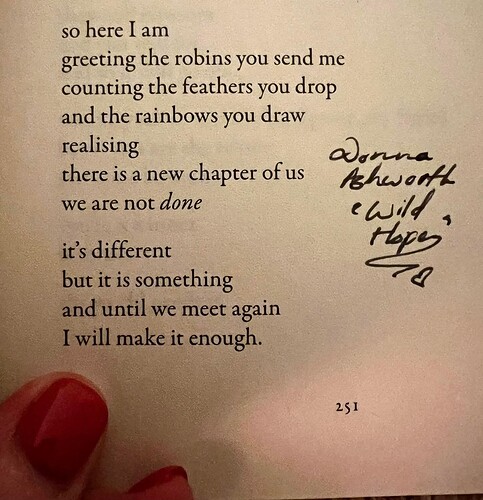 so here I am
greeting the robins you send me
counting the feathers you drop
and the rainbows you draw
realising
there is a new chapter of us
we are not done
it’s different
but it is something
and until we meet again
I will make it enough.
Donna
Ashworth
'Wild
Hope'
251